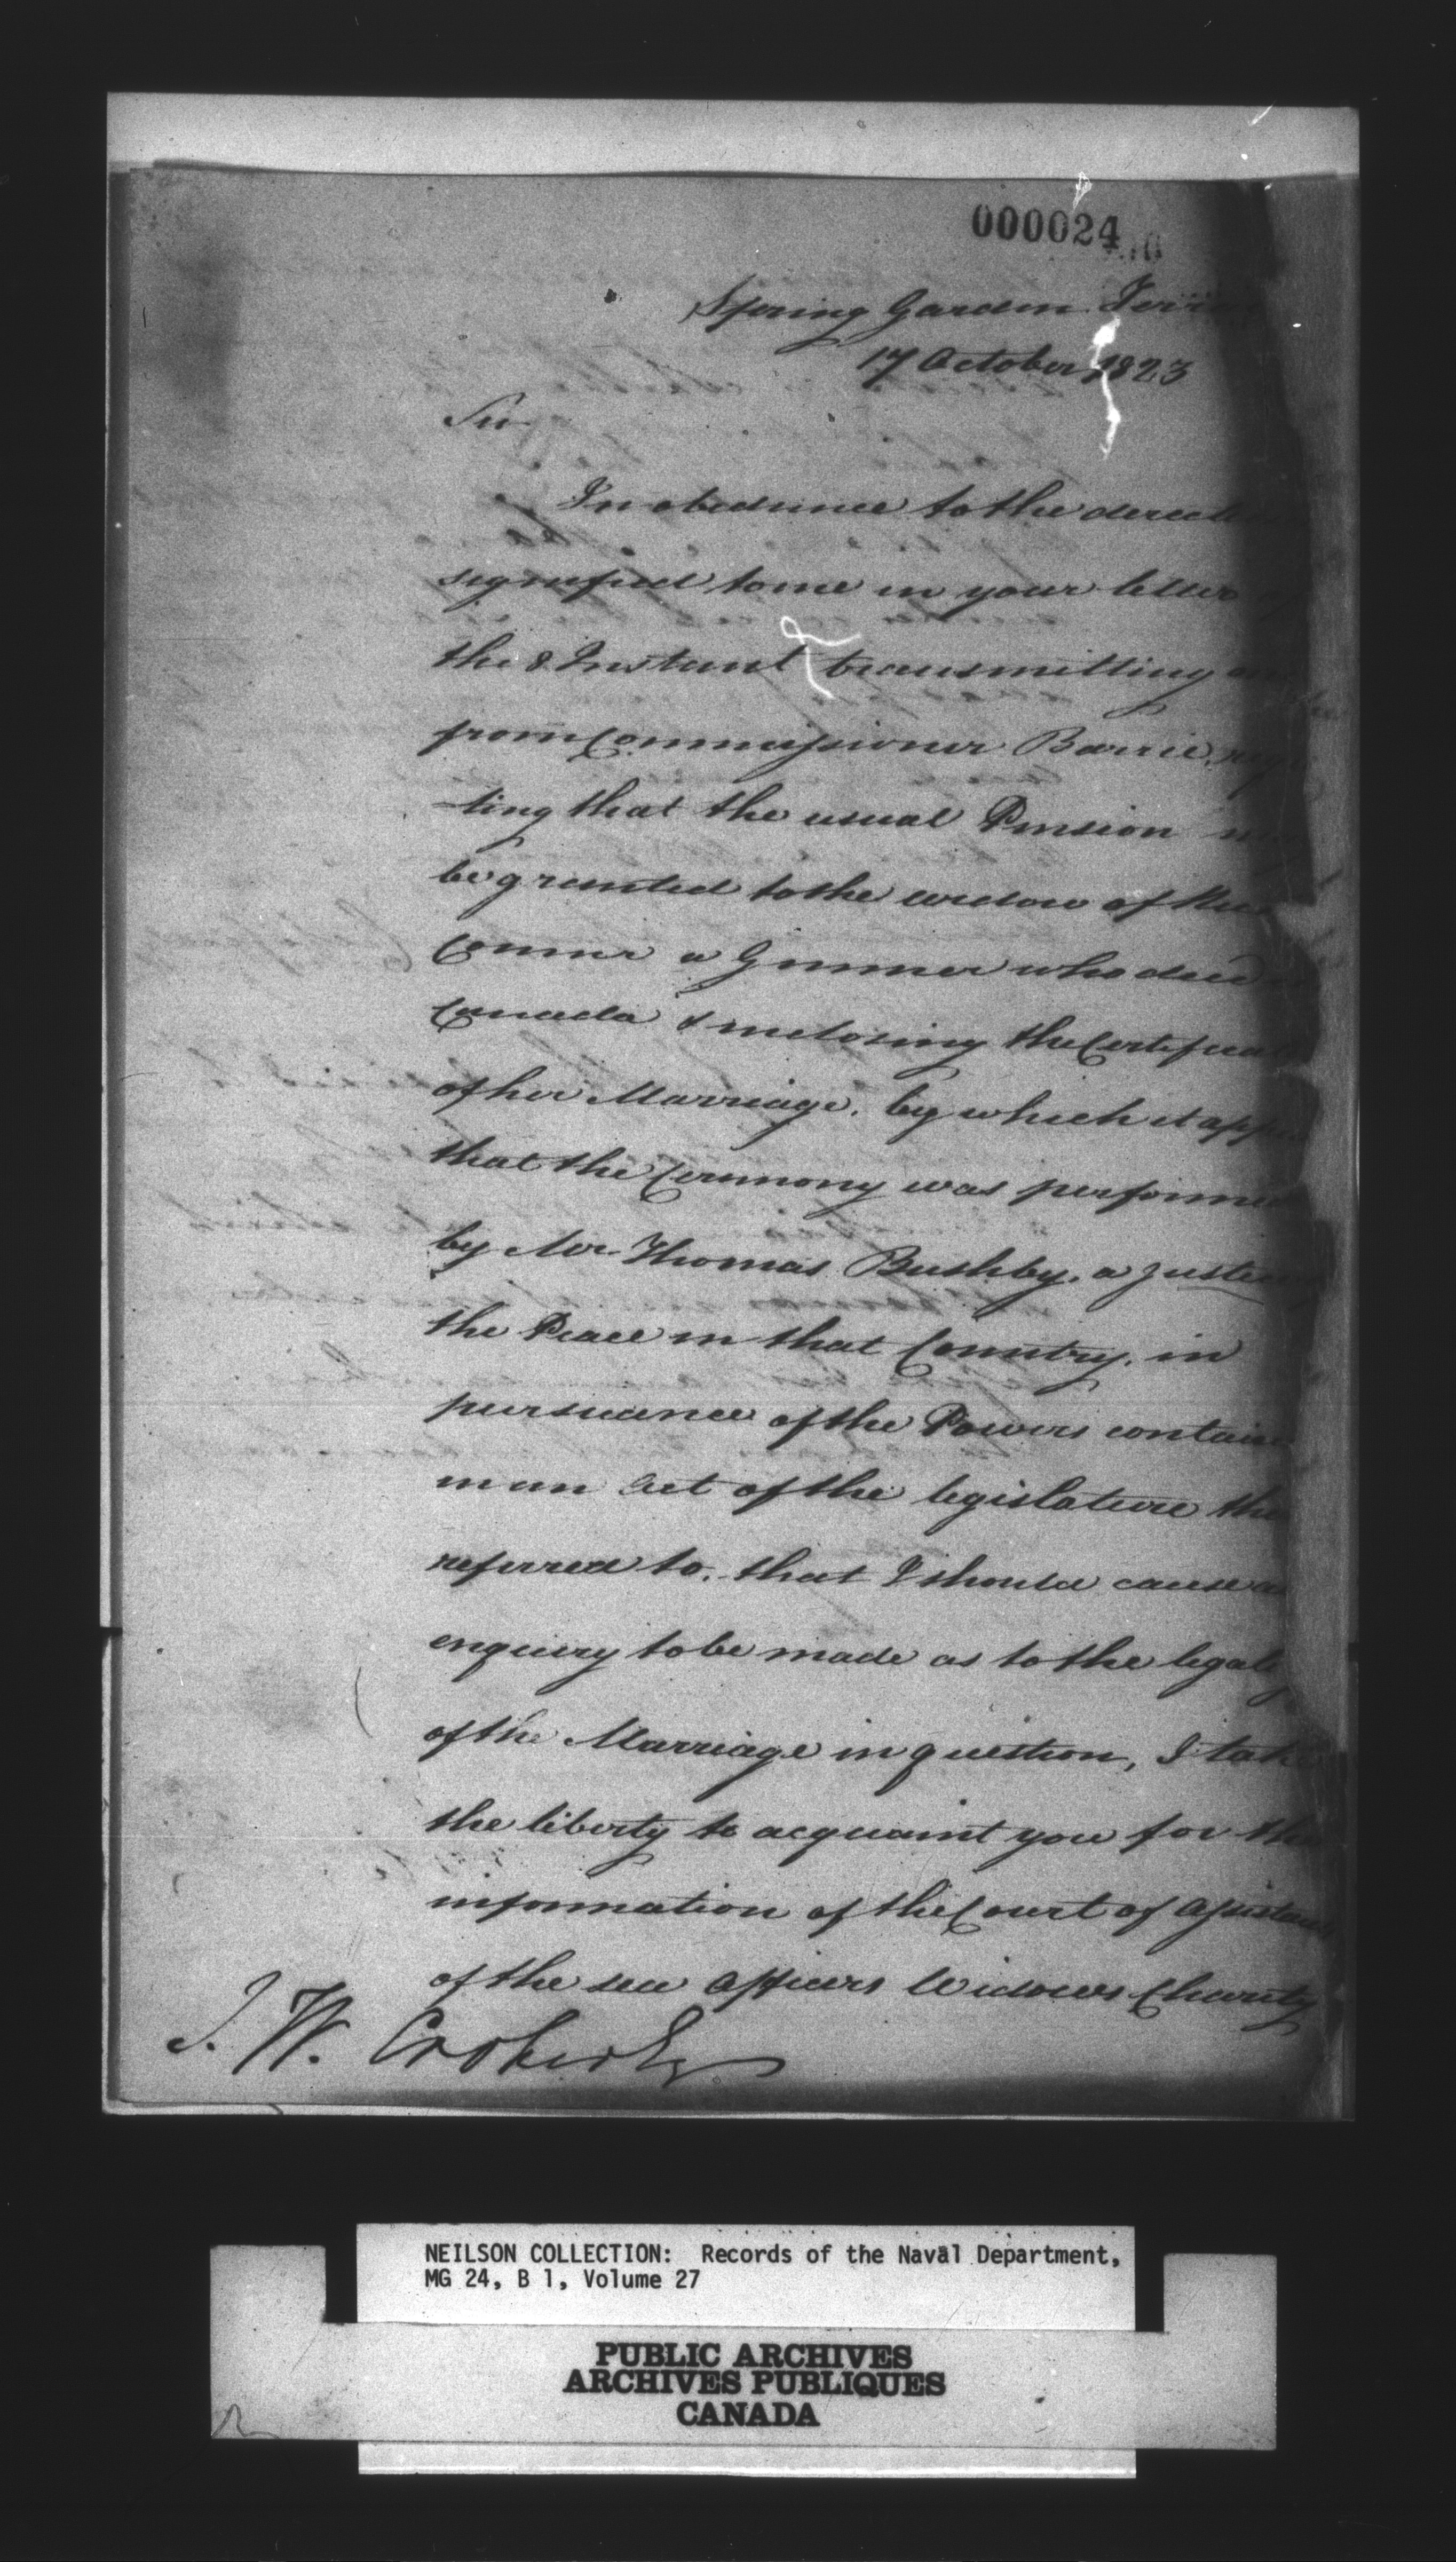 000024
Spring Garden
17 October 1823
Sir
In obedience to the
signified to me in your letter of
the 8 Instant transmitting
from Commissioner Barrie,
-ting that the usual Pension
be granted to the widow of
Conner a Gunner who died
Canada & inclosing the
of her Marriage. by which it
that the Ceremony was performed
by Mr. Thomas Bushby. a
the Peace in that Country. in
pursuance of the Powers
in an Act of the legislature
referred to. that I should cause
enquiry to be made as to the
of the Marriage in question, I take
the liberty to acquaint you for the
information of the Court of
of the sea Officers Widows Charity
J. W. Croker Esq
NEILSON COLLECTION: Records of the Naval Department,
MG 24, B 1, Volume 27
PUBLIC ARCHIVES
ARCHIVES PUBLIQUES
CANADA